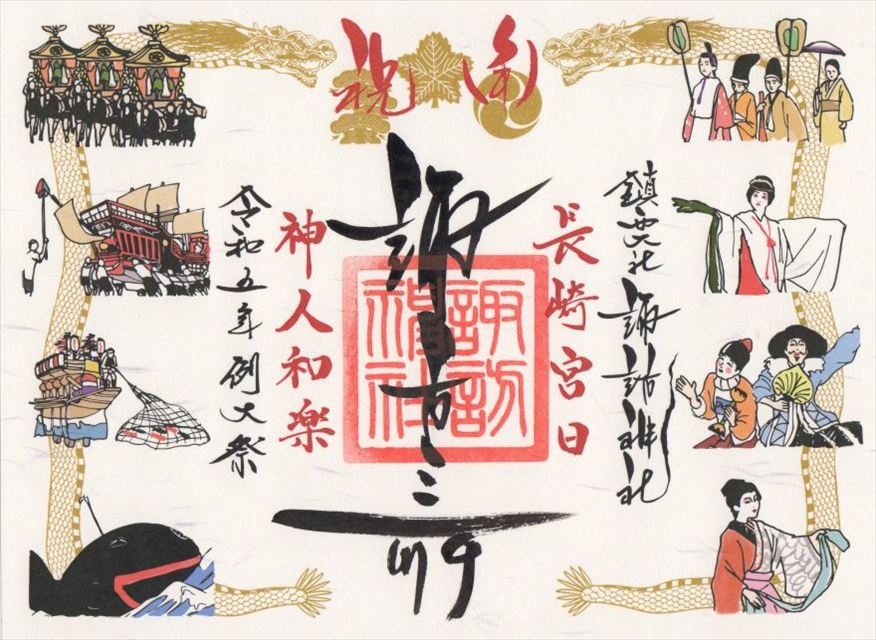 奉祝
鎮西大社 諏訪神社
長崎宮日
諏方三所
諏訪神社
神人和楽
令和五年例大祭